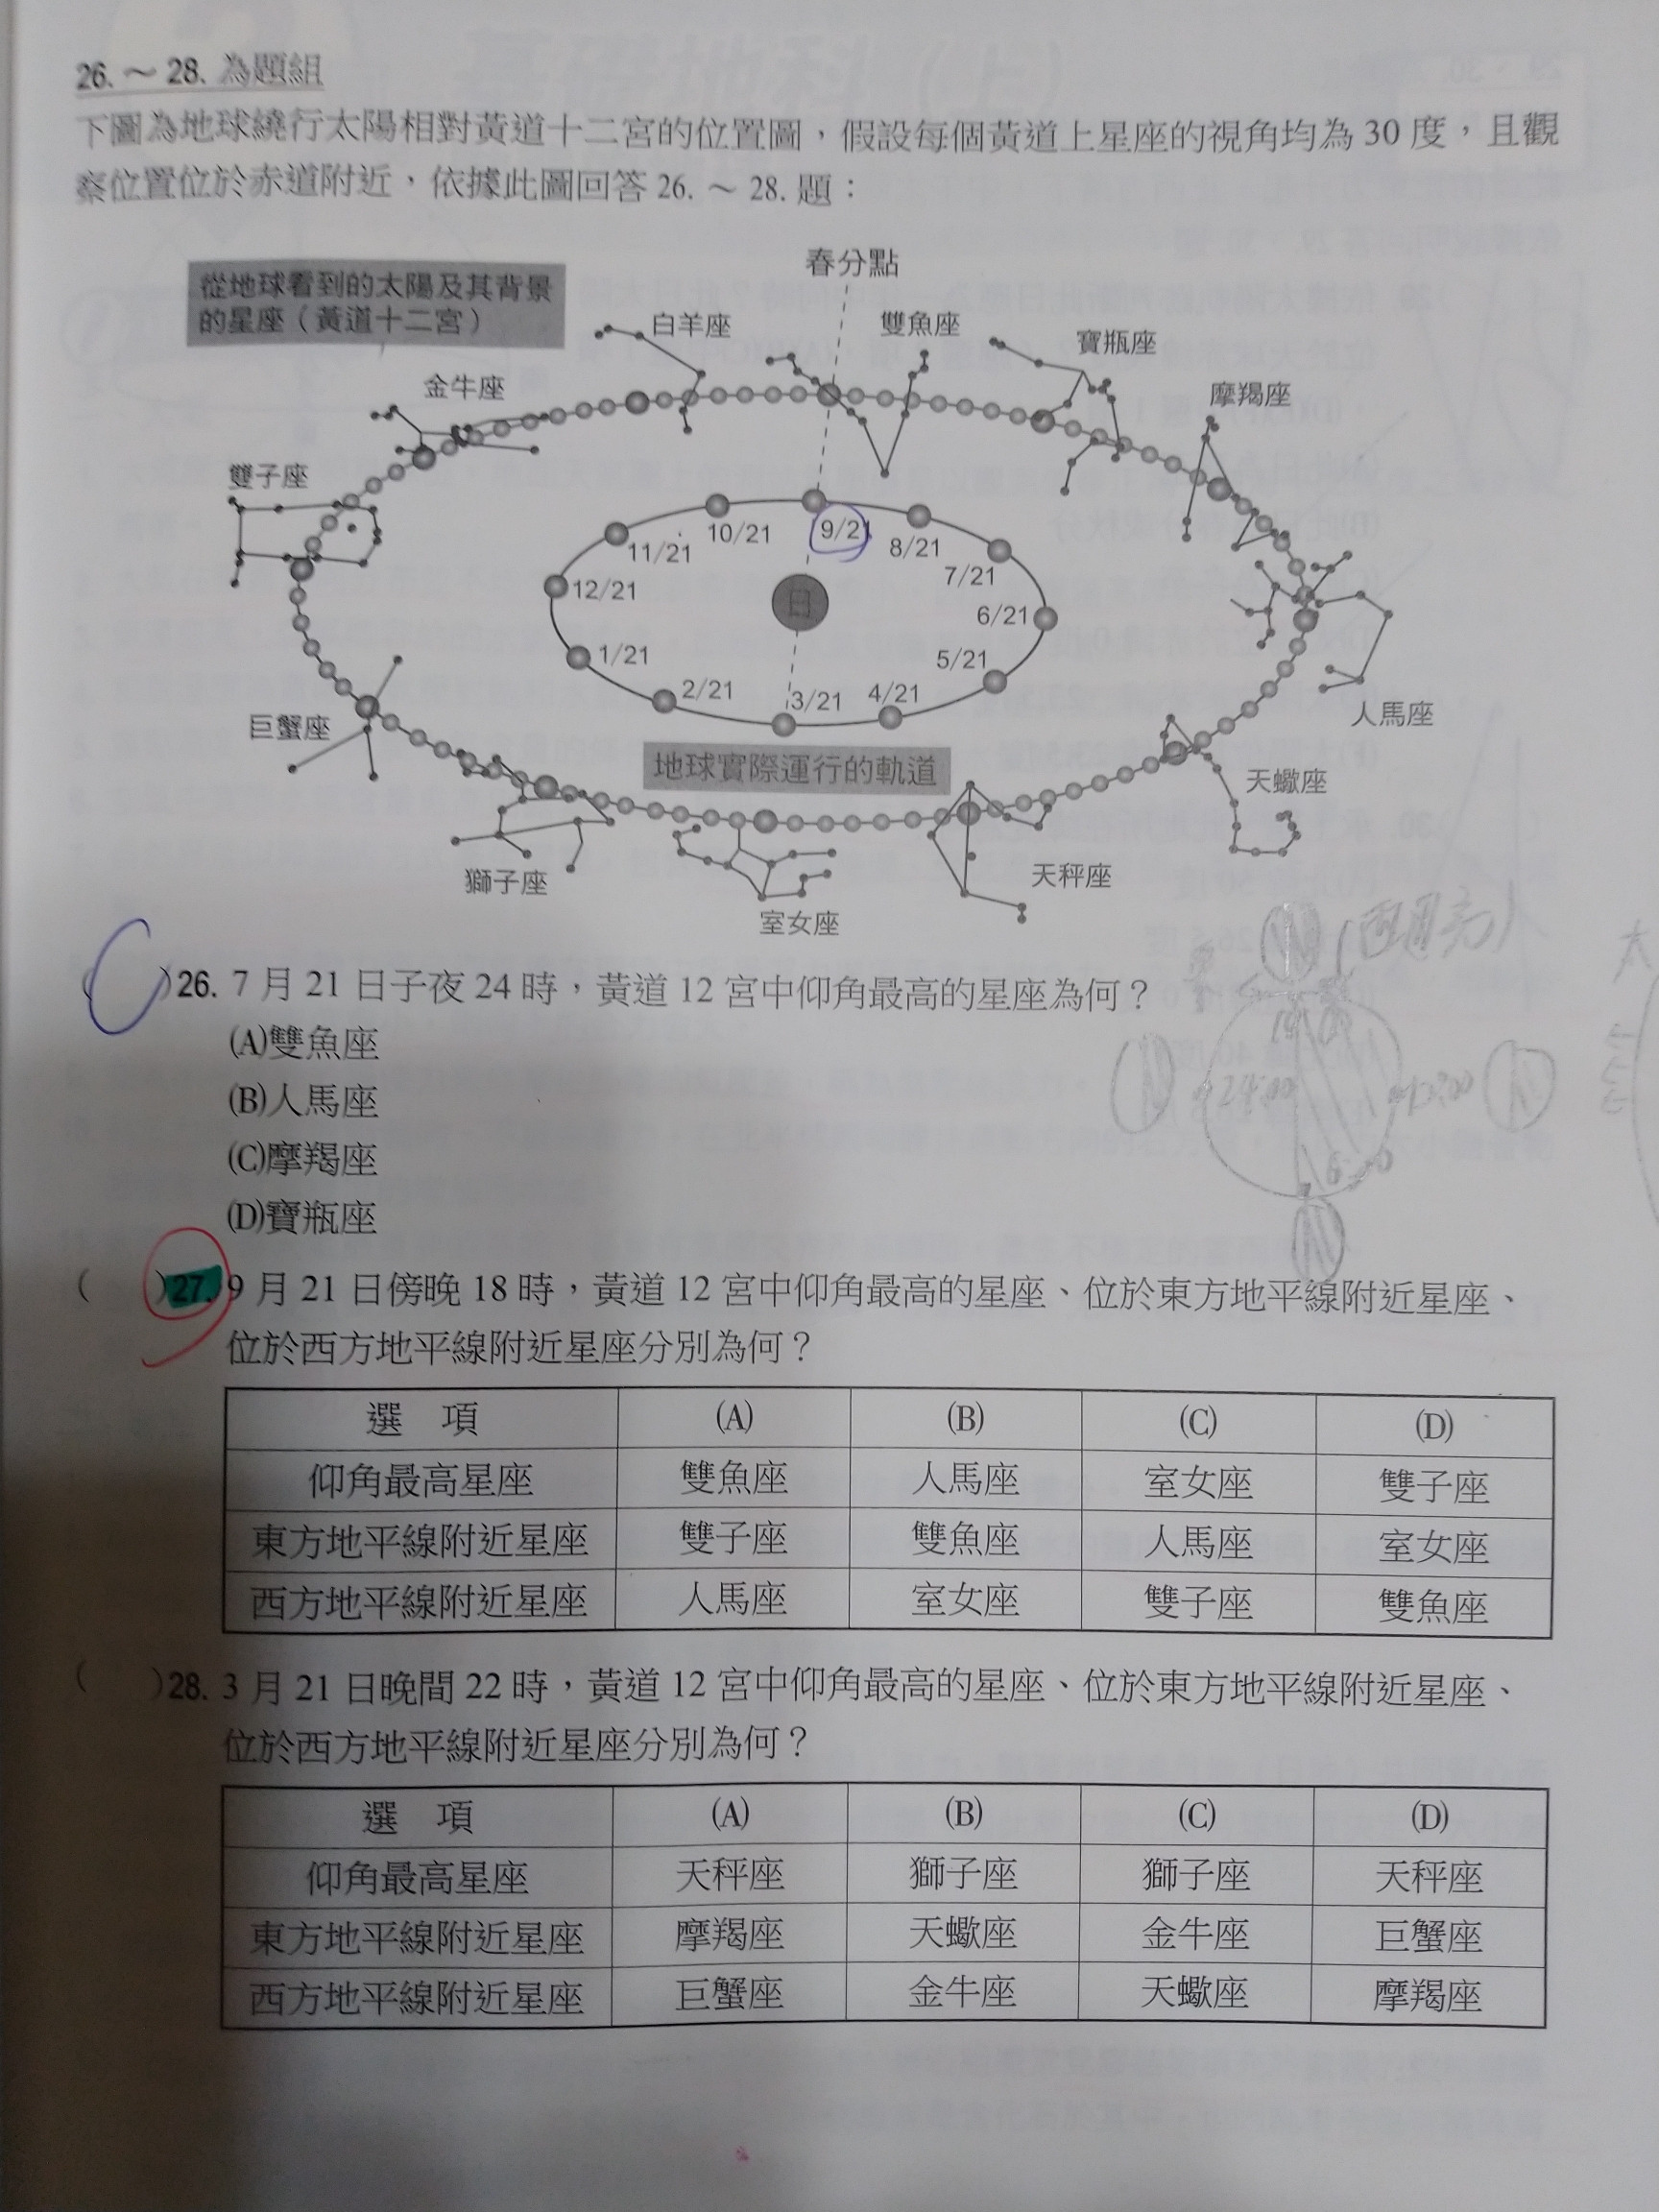 26. ～ 28. 為題組
下圖為地球繞行太陽相對黃道十二宮的位置圖，假設每個黃道上星座的視角均為 30 度，且觀
察位置位於赤道附近，依據此圖回答 26. ～ 28. 題：
春分點
從地球看到的太陽及其背景
的星座（黃道十二宮）
白羊座
雙魚座
寶瓶座
金牛座
摩羯座
雙子座
10/21
9/21
8/21
11/21
7/21
12/21
日
6/21
1/21
5/21
2/21
3/21
4/21
巨蟹座
人馬座
地球實際運行的軌道
天蠍座
獅子座
天秤座
室女座
( )26. 7 月 21 日子夜 24 時，黃道 12 宮中仰角最高的星座為何？
(A)雙魚座
(B)人馬座
(C)摩羯座
(D)寶瓶座
24:00
6:00
( )27. 9 月 21 日傍晚 18 時，黃道 12 宮中仰角最高的星座、位於東方地平線附近星座、
位於西方地平線附近星座分別為何？
選 項 (A) (B) (C) (D)
仰角最高星座 雙魚座 人馬座 室女座 雙子座
東方地平線附近星座 雙子座 雙魚座 人馬座 室女座
西方地平線附近星座 人馬座 室女座 雙子座 雙魚座
( )28. 3 月 21 日晚間 22 時，黃道 12 宮中仰角最高的星座、位於東方地平線附近星座、
位於西方地平線附近星座分別為何？
選 項 (A) (B) (C) (D)
仰角最高星座 天秤座 獅子座 獅子座 天秤座
東方地平線附近星座 摩羯座 天蠍座 金牛座 巨蟹座
西方地平線附近星座 巨蟹座 金牛座 天蠍座 摩羯座